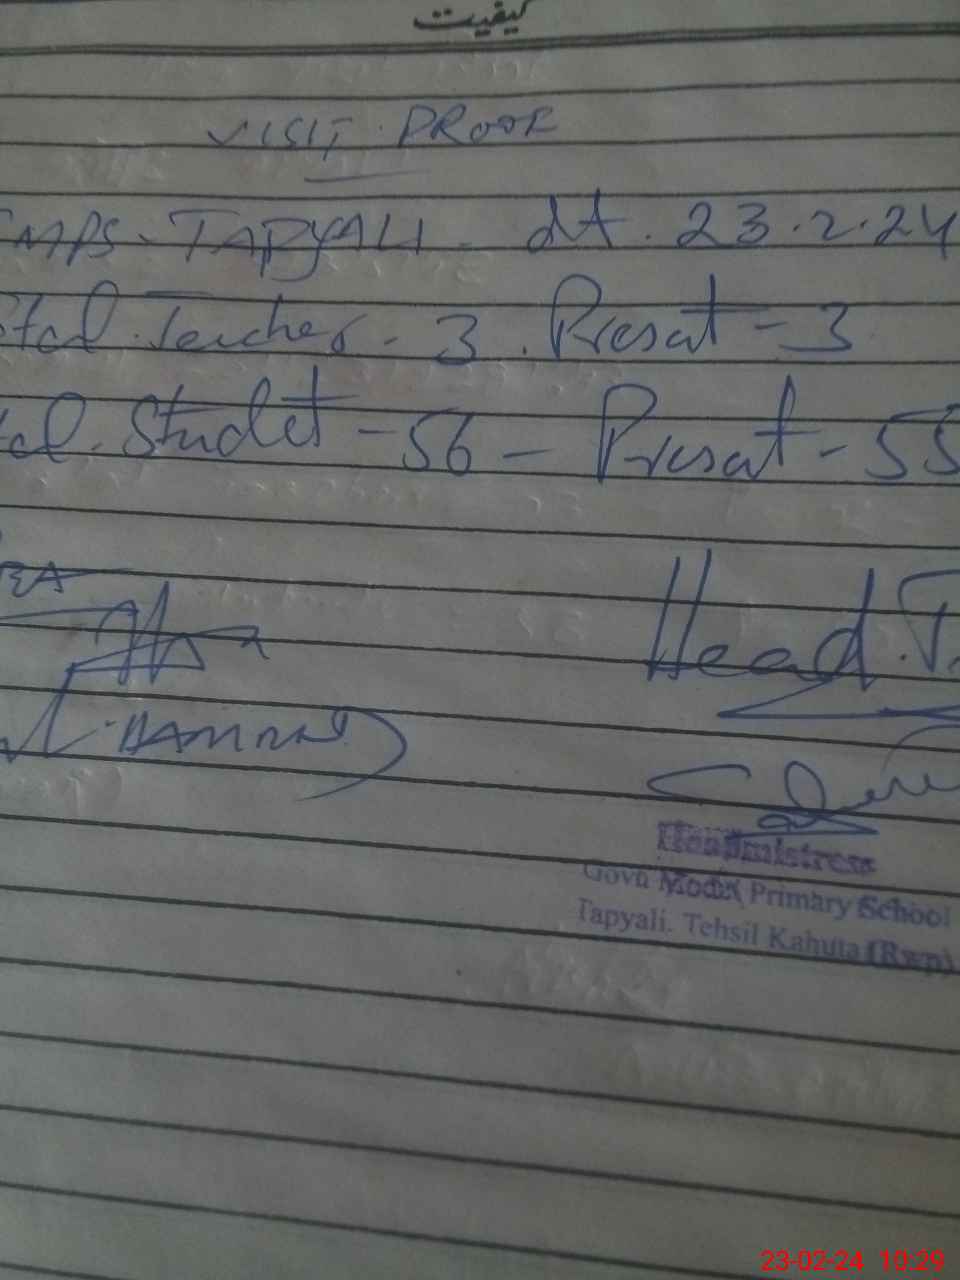 کیفیت
VISIT PROOF
GMPS - TAPYALI - dt. 23.2.24
Total Teacher - 3. Presat - 3
Total Studet - 56 - Presat - 55
Head.T.
Headmistress
Govt: Model Primary School
Tapyali. Tehsil Kahuta (Rwp)
23-02-24 10:29